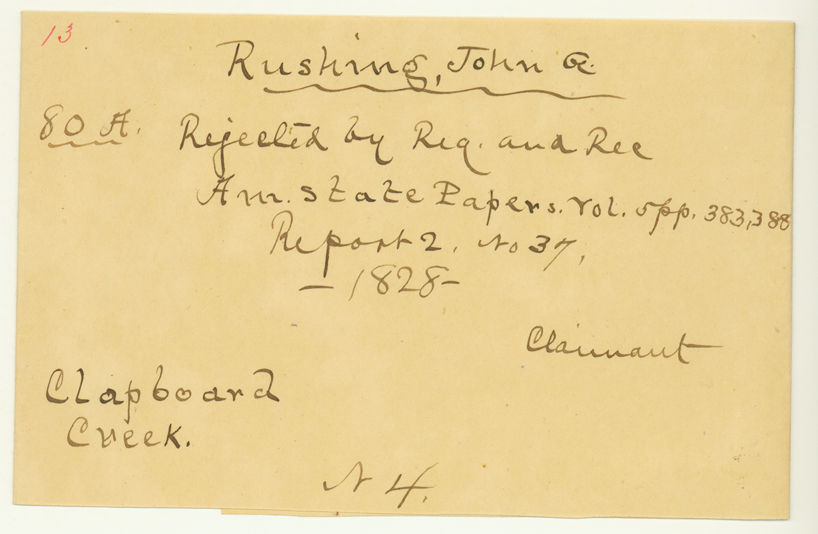 13
Rushing, John G.
80 A. Rejected by Reg. and Rec
Am. State Papers. Vol. 5 pp. 383, 388
Report 2. No 37,
— 1828 —
Claimant
Clapboard
Creek.
N 4.